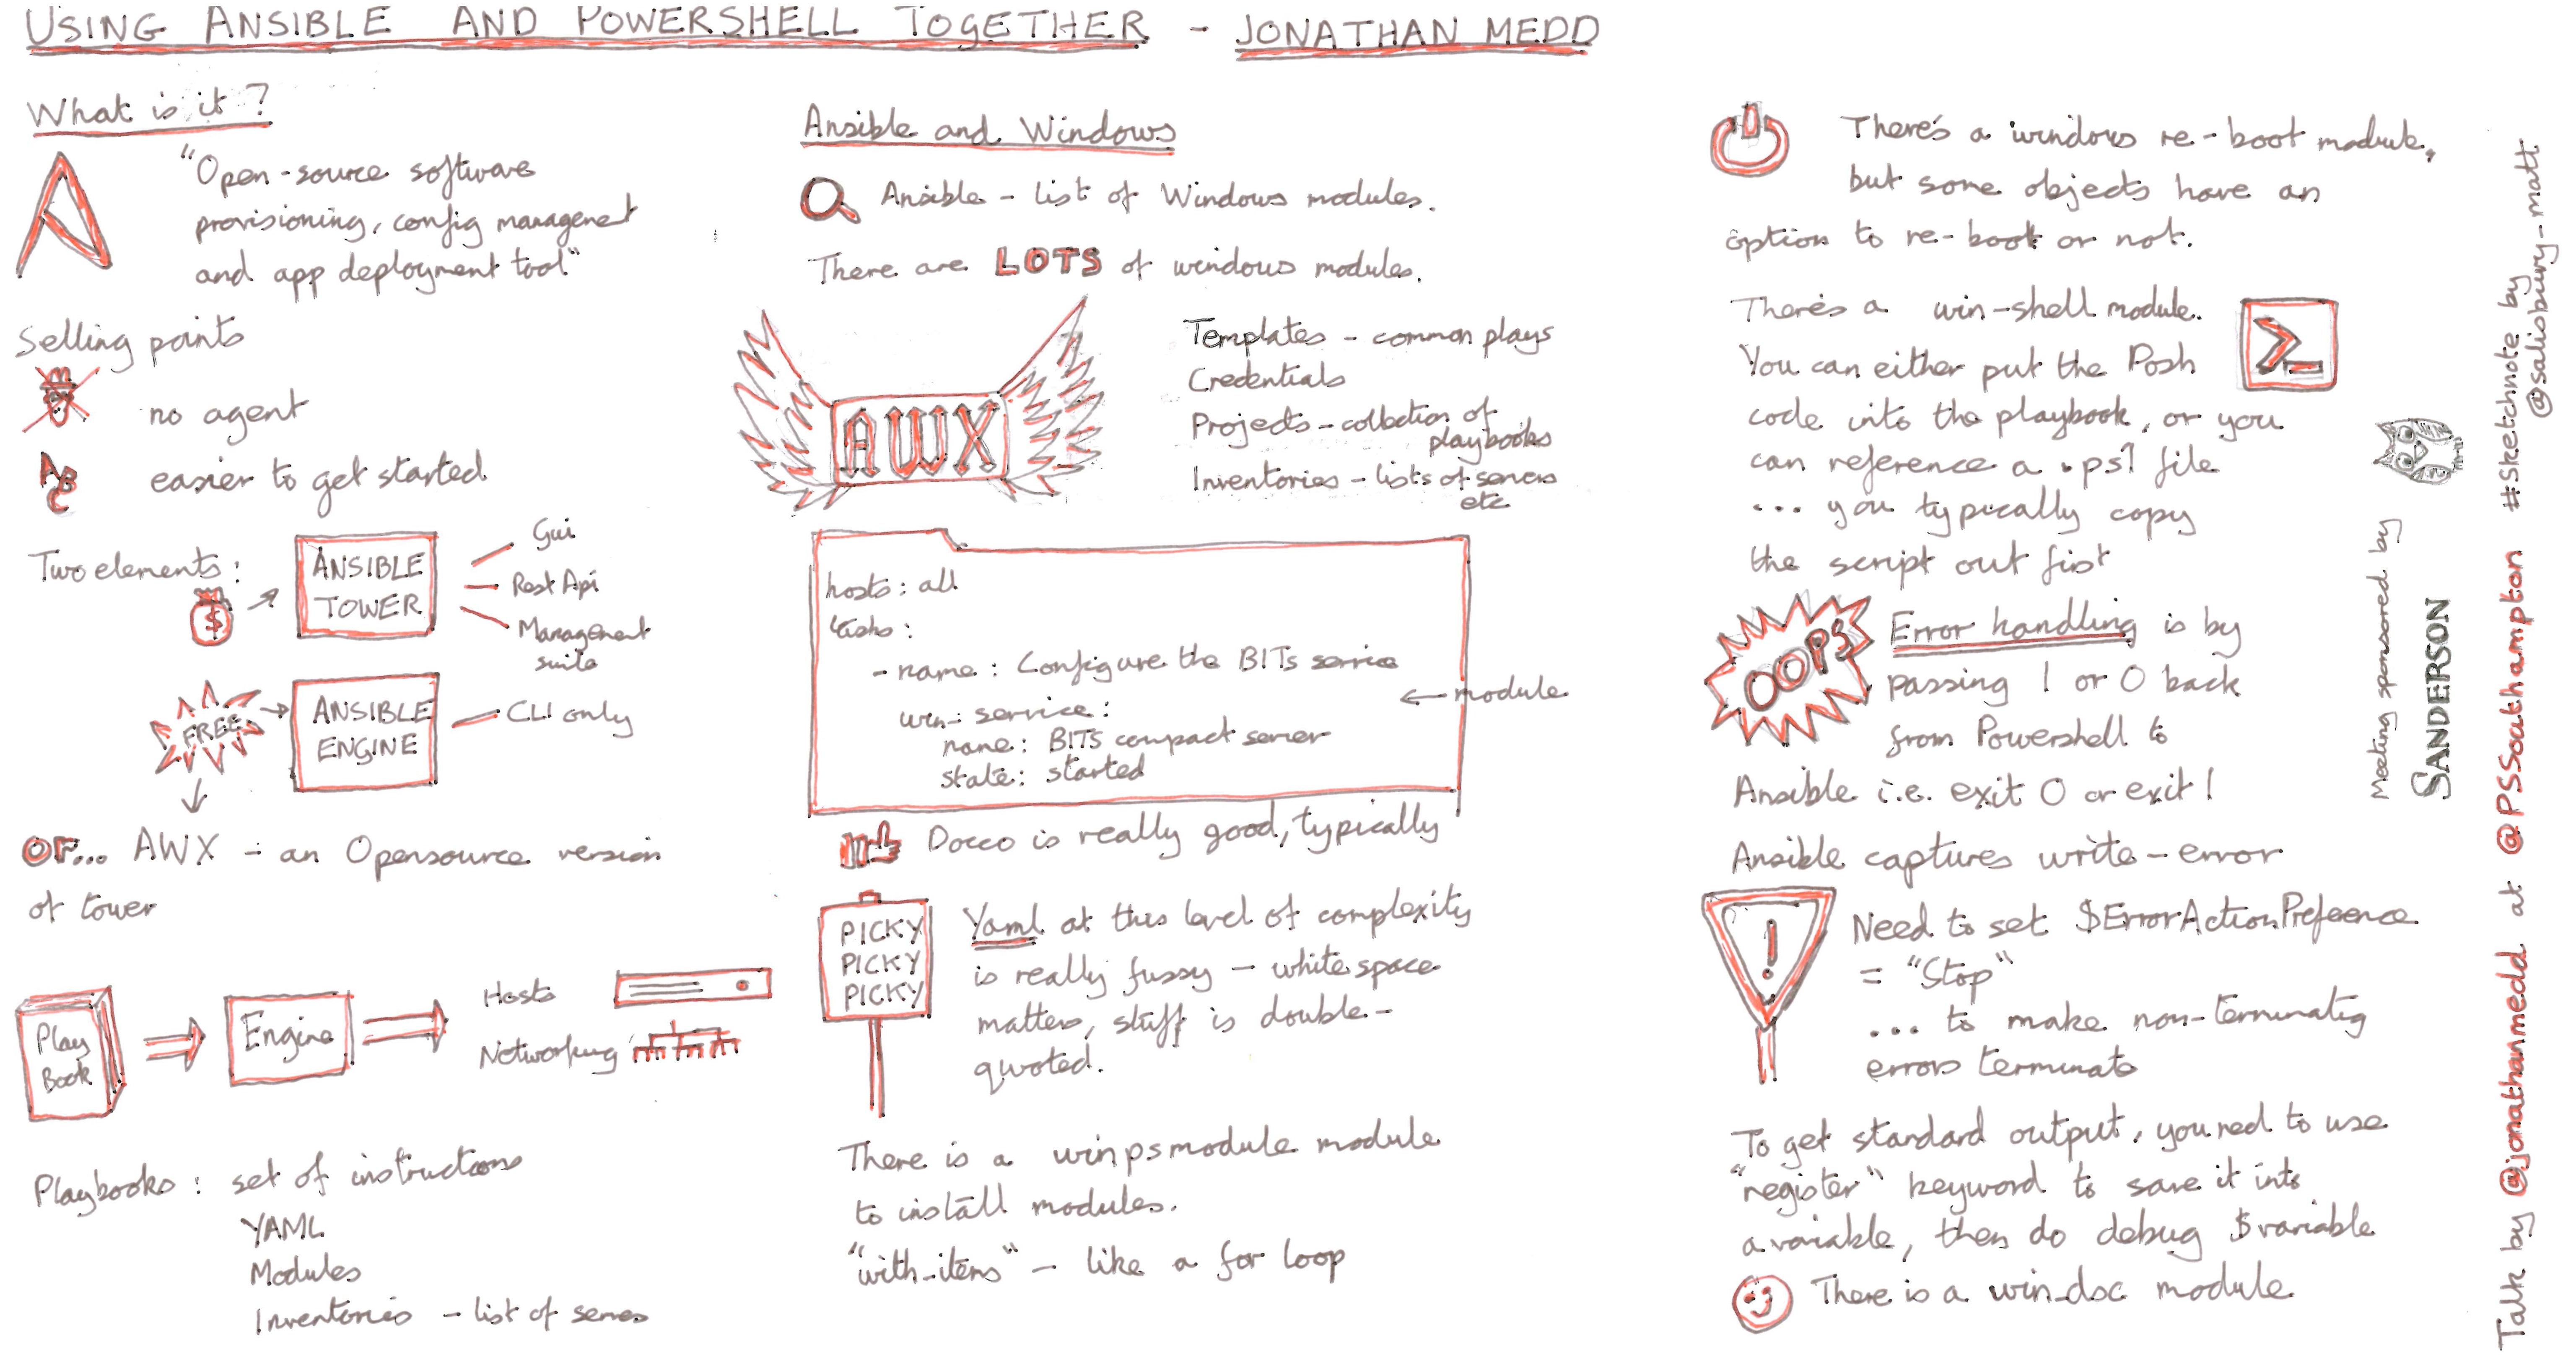 USING ANSIBLE AND POWERSHELL TOGETHER - JONATHAN MEDD
What is it?
"Open-source software
provisioning, config managenet
and app deployment tool"
Selling points
no agent
ABC
easier to get started
Two elements:
$
ANSIBLE
TOWER
Gui
Rest Api
Management
suite
FREE
ANSIBLE
ENGINE
CLI only
OR... AWX - an Opensource version
of tower
Play
Book
Engine
Hosts
Networking
Playbooks: set of instructions
YAML
Modules
Inventories - list of servers
Ansible and Windows
Ansible - list of Windows modules.
There are LOTS of windows modules.
AWX
Templates - common plays
Credentials
Projects - collection of
playbooks
Inventories - lists of servers
etc
hosts: all
tasks:
- name: Configure the BITs service
win- service:
← module
name: BITs compact server
state: started
Docco is really good, typically
PICKY
PICKY
PICKY
Yaml at this level of complexity
is really fussy - white space
matters, stuff is double-
quoted.
There is a winpsmodule module
to install modules.
"with_items" - like a for loop
There's a windows re-boot module,
but some objects have an
option to re-boot or not.
There's a win-shell module.
You can either put the Posh
code into the playbook, or you
can reference a .ps1 file
... you typically copy
the script out first
OOPS
Error handling is by
passing 1 or 0 back
from Powershell to
Ansible i.e. exit 0 or exit 1
Ansible captures write-error
!
Need to set $ErrorActionPrefeence
= "Stop"
... to make non-terminatig
errors terminate
To get standard output, you need to use
"register" keyword to save it into
a variable, then do debug $variable
There is a win_dsc module
Meeting sponsored by
SANDERSON
Talk by @jonathanmedd at @PSSouthampton #sketchnote by
@salisbury-matt